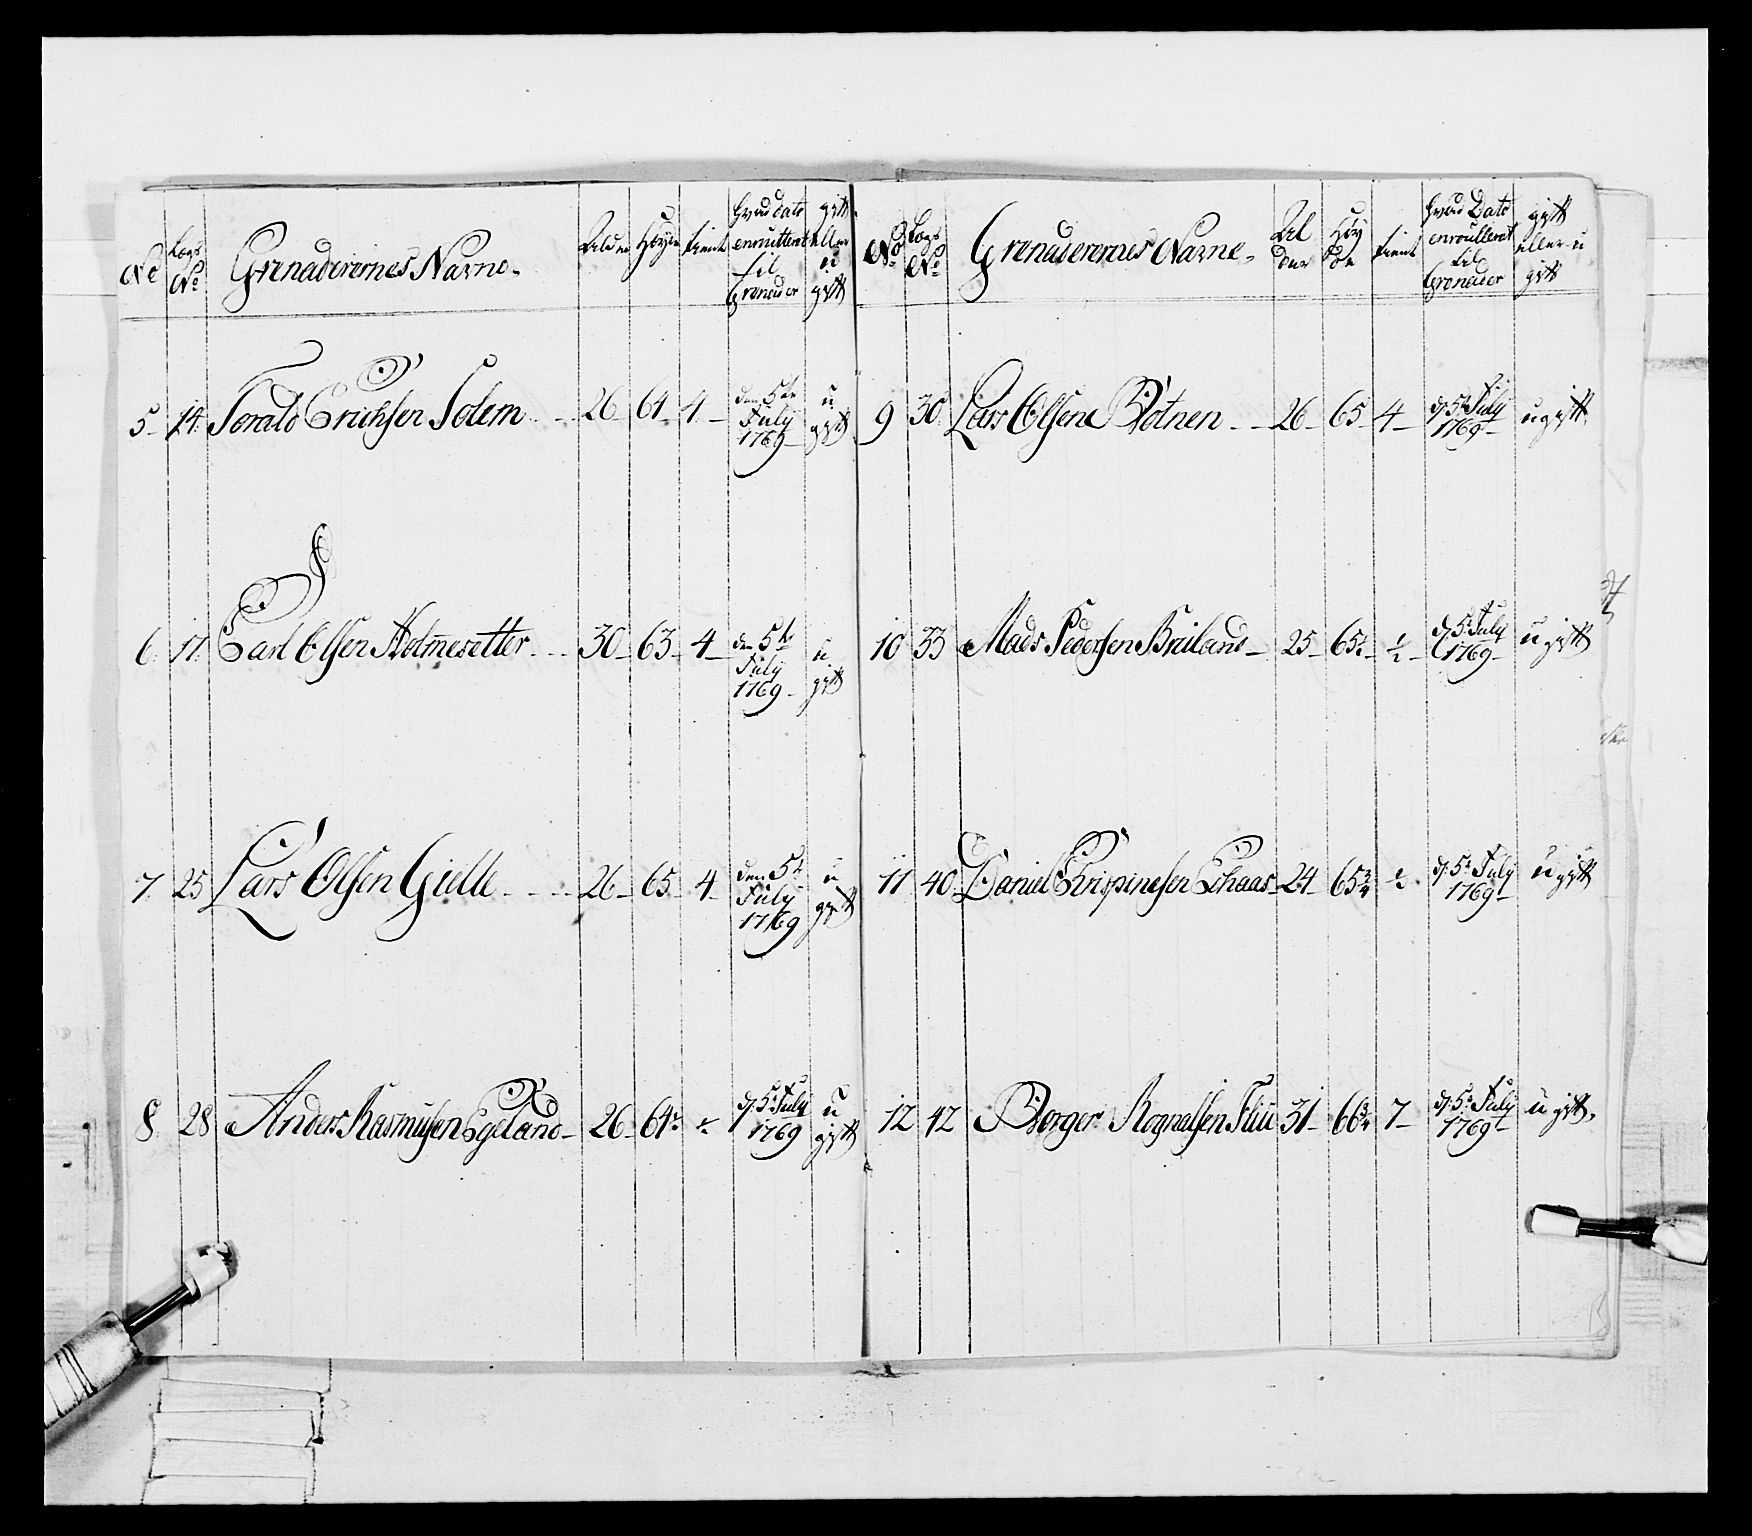 No Lægs No Grenaderernes Navne. Alder Høyde tient Hvad dato enroulleret til Grenader gift eller u gift
5. 14. Torald Erichsen Solem 26 64 4 den 5te July 1769 u gift
6. 17. Carl Olsen Holmesetter 30 63 4 den 5te July 1769 u gift
7. 25 Lars Olsen Gielle 26 65 4 den 5te July 1769 u gift
8. 28 Anders Rasmusen Egeland 26 64 d. 5te July 1769 u gift
No Lægs No Grenaderernes Navne. Al der Høy de tient Hvad Dato enroulleret til Grenader gift eller u gift
9 30 Lars Olsene Botnen 26 65 4 d. 5te July 1769 ugift
10 33 Mads Pedersen Briland 25 65½ ½ d. 5te July 1769 ugift
11 40 Daniel Chrispinesen Schaar 24 65¾ ½ d. 5te July 1769 ugift
12 42 Børger Rognalsen Flu 31 66¾ 7 d. 5te July 1769 u gift.